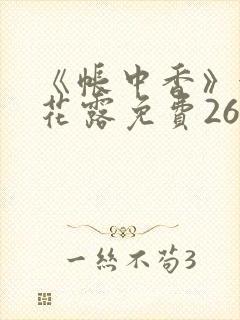 《帐中香》
花露免費26
一絲不苟3